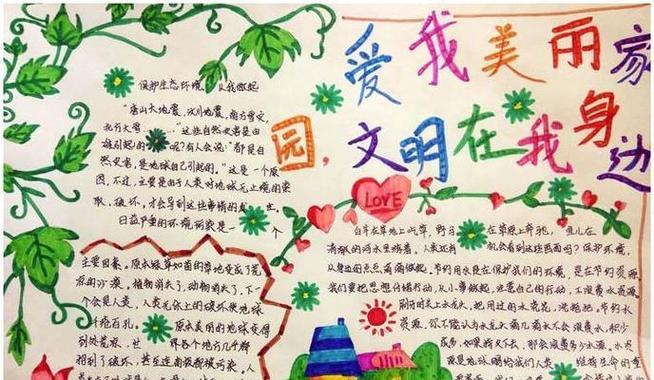 爱我美丽家
园，文明在我身边
保护生态环境，从我做起
“唐山大地震，汶川地震，南方雪灾，
北方大雪……”这些自然灾害是由
谁引起的呢？有人会说：“都是自
然灾害，是地球自己引起的。”这是一个原
因，不过，主要是由于人类对地球无止境的索
取、破坏，才会导致这些事情的发生。
日益严重的环境问题是一个
主要因素。原本绿草如茵的草地变成了荒
凉的沙漠，植物消失了，动物消失了，下一
个会是人类，人类无休止的破坏使地球
千疮百孔。原本美丽的地球变得
到处荒凉，世界各个地方几乎都
相到了破坏，甚至连南极都被污染，人
LOVE
白牛在草地上吃草，野马在草原上奔驰，鱼儿在
清澈的河水里嬉戏。人类还有机会看到这些画面吗？保护环境，
从身边的点点滴滴做起。节约用水是在保护我们的环境，是在节约资源
我们要把思想付诸行动，从小事做起，注意自己的行动，不浪费水资源。
刷牙时关上水龙头，把用过的水浇花，洗拖把。节约水
资源，你不能认为水龙头滴几滴水不会浪费水，积少
成多，如果将关不会，那会浪费多少水。水
源是地球赐给我们人类维持生命的重